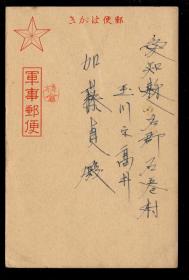 郵便はがき
軍事郵便
愛知縣八名郡石巻村
玉川字高井
加藤貞殿